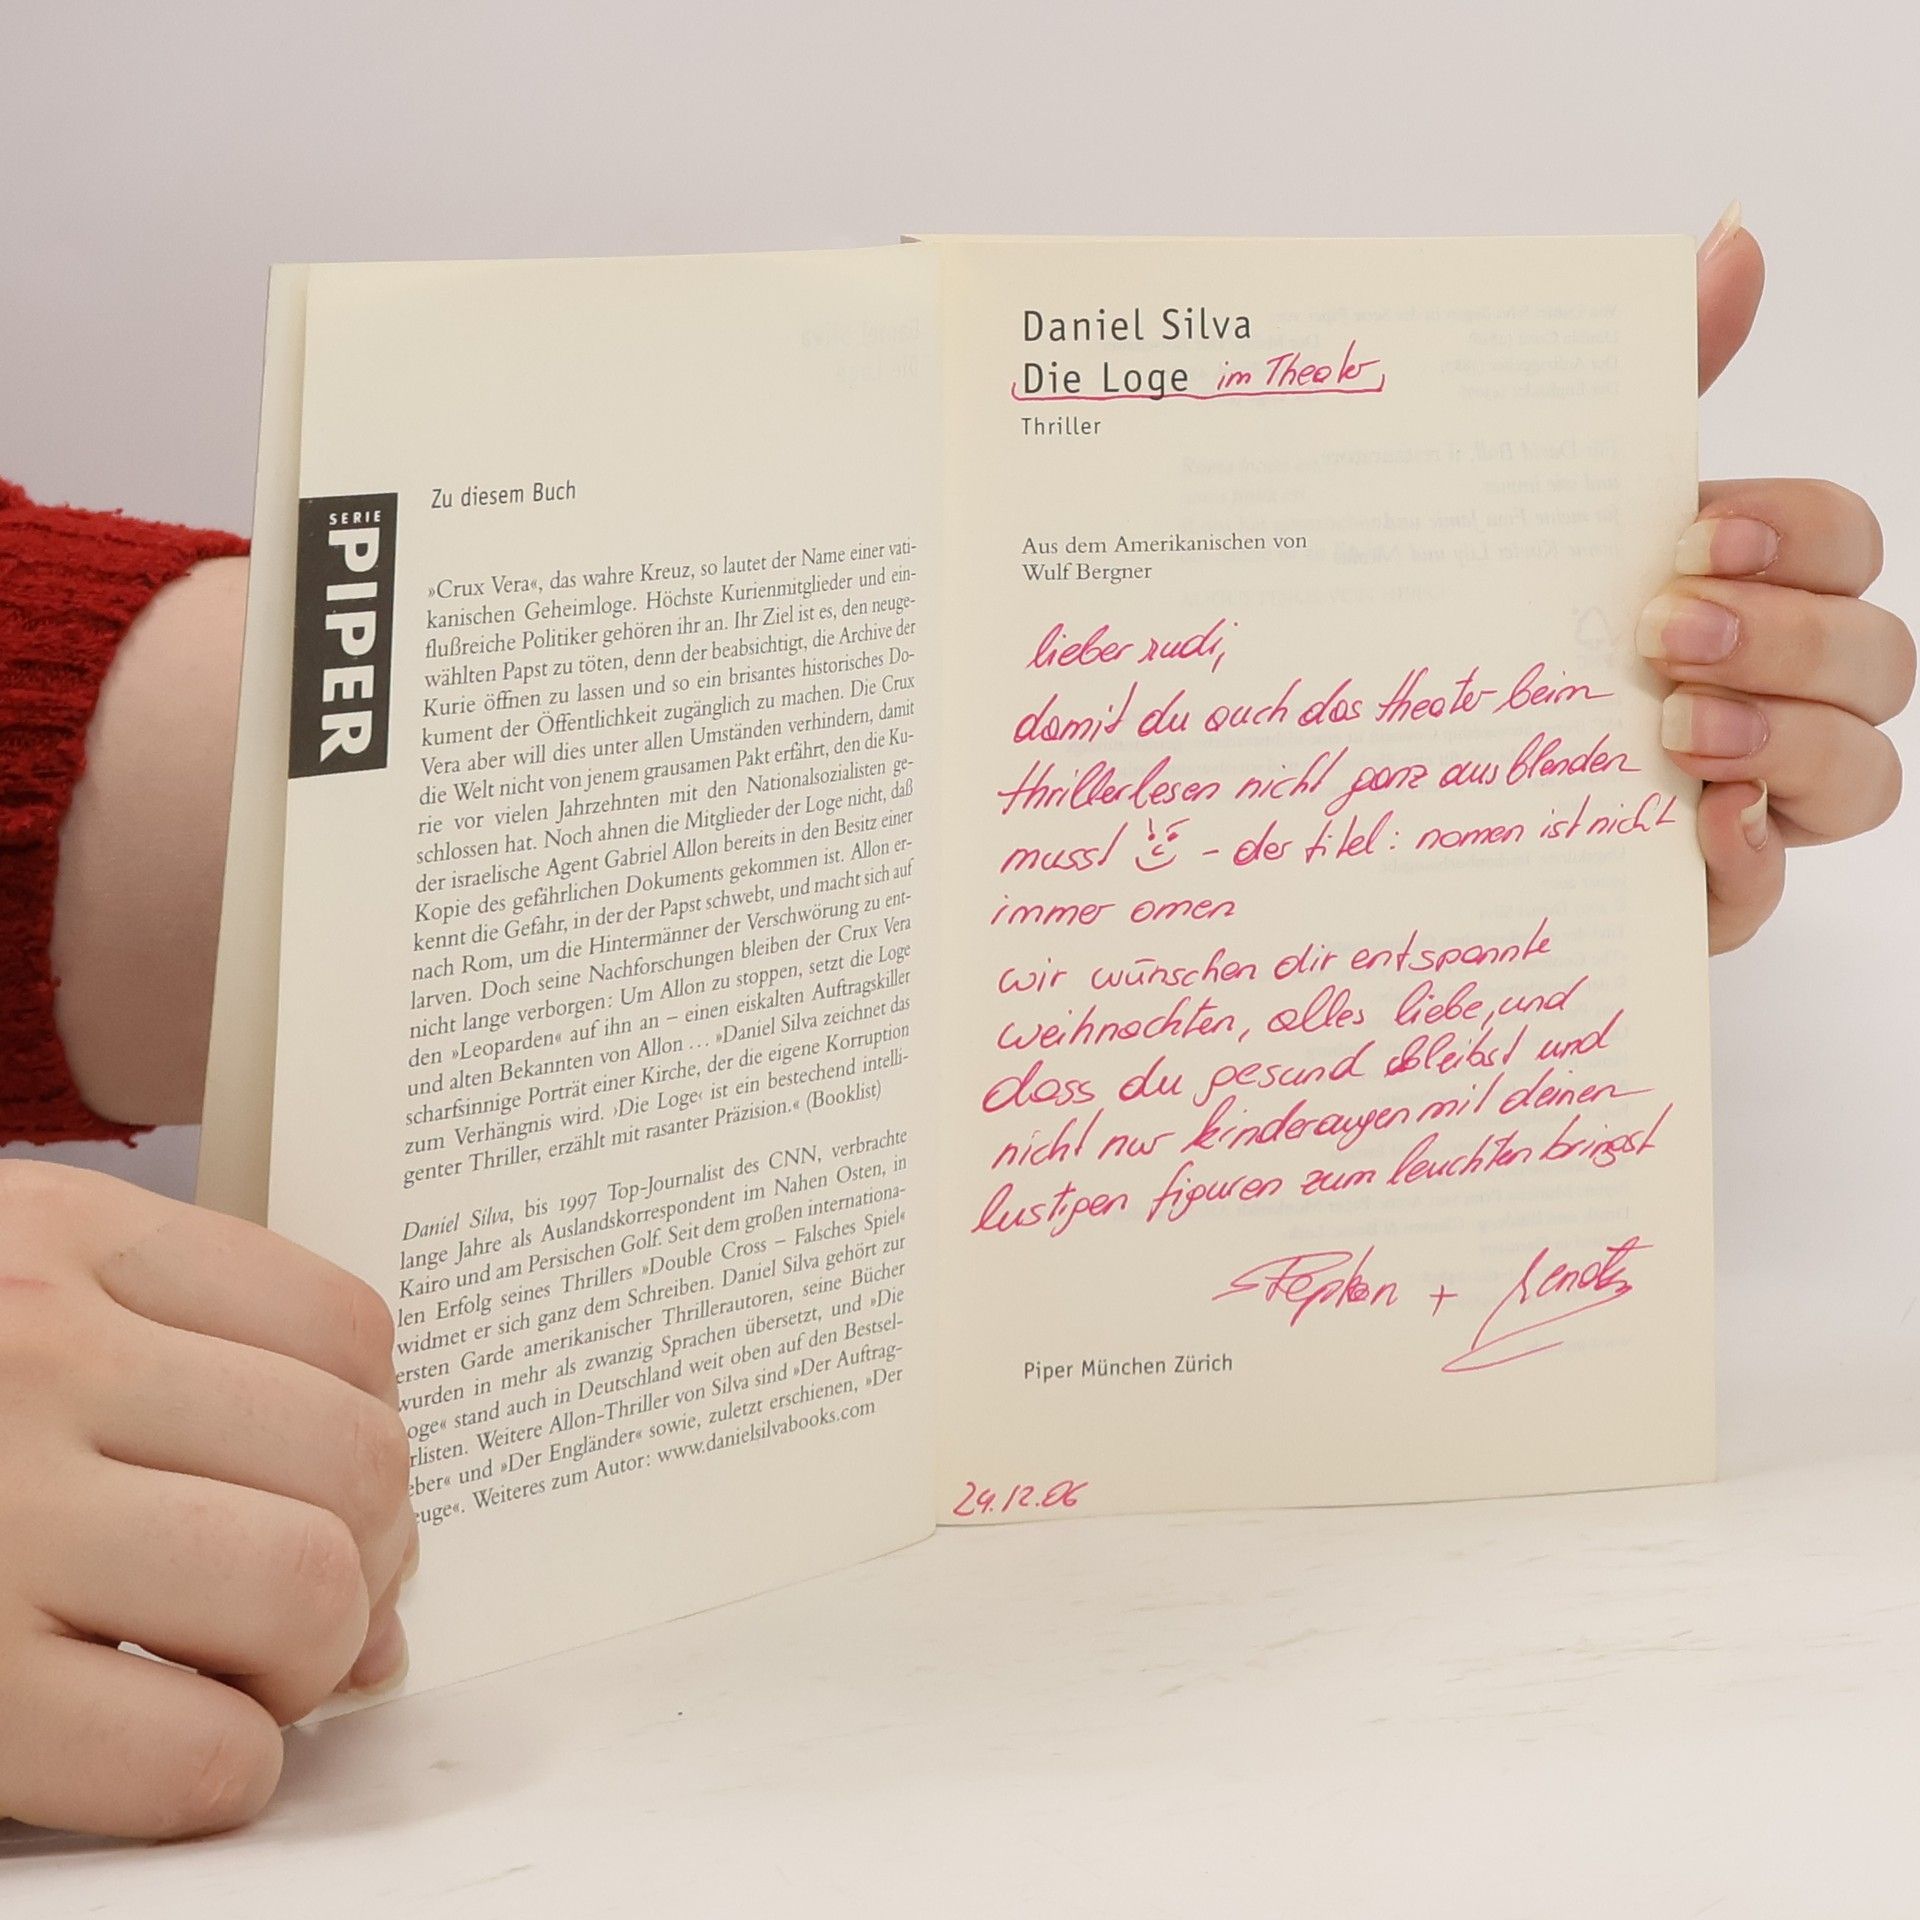 SERIE
PIPER
Zu diesem Buch
»Crux Vera«, das wahre Kreuz, so lautet der Name einer vati-
kanischen Geheimloge. Höchste Kurienmitglieder und ein-
flußreiche Politiker gehören ihr an. Ihr Ziel ist es, den neuge-
wählten Papst zu töten, denn der beabsichtigt, die Archive der
Kurie öffnen zu lassen und so ein brisantes historisches Do-
kument der Öffentlichkeit zugänglich zu machen. Die Crux
Vera aber will dies unter allen Umständen verhindern, damit
die Welt nicht von jenem grausamen Pakt erfährt, den die Ku-
rie vor vielen Jahrzehnten mit den Nationalsozialisten ge-
schlossen hat. Noch ahnen die Mitglieder der Loge nicht, daß
der israelische Agent Gabriel Allon bereits in den Besitz einer
Kopie des gefährlichen Dokuments gekommen ist. Allon er-
kennt die Gefahr, in der der Papst schwebt, und macht sich auf
nach Rom, um die Hintermänner der Verschwörung zu ent-
larven. Doch seine Nachforschungen bleiben der Crux Vera
nicht lange verborgen: Um Allon zu stoppen, setzt die Loge
den »Leoparden« auf ihn an – einen eiskalten Auftragskiller
und alten Bekannten von Allon ... »Daniel Silva zeichnet das
scharfsinnige Porträt einer Kirche, der die eigene Korruption
zum Verhängnis wird. ›Die Loge‹ ist ein bestechend intelli-
genter Thriller, erzählt mit rasanter Präzision.« (Booklist)
Daniel Silva, bis 1997 Top-Journalist des CNN, verbrachte
lange Jahre als Auslandskorrespondent im Nahen Osten, in
Kairo und am Persischen Golf. Seit dem großen internationa-
len Erfolg seines Thrillers »Double Cross – Falsches Spiel«
widmet er sich ganz dem Schreiben. Daniel Silva gehört zur
ersten Garde amerikanischer Thrillerautoren, seine Bücher
wurden in mehr als zwanzig Sprachen übersetzt, und »Die
oge« stand auch in Deutschland weit oben auf den Bestsel-
rlisten. Weitere Allon-Thriller von Silva sind »Der Auftrag-
eber« und »Der Engländer« sowie, zuletzt erschienen, »Der
euge«. Weiteres zum Autor: www.danielsilvabooks.com
Daniel Silva
Die Loge im Theater
Thriller
Aus dem Amerikanischen von
Wulf Bergner
lieber rudi,
damit du auch das theater beim
thrillerlesen nicht ganz ausblenden
musst – der titel: nomen ist nicht
immer omen
wir wünschen dir entspannte
weihnachten, alles liebe, und
dass du gesund bleibst und
nicht nur kinderaugen mit deinen
lustigen figuren zum leuchten bringst
Stephan + Renate
Piper München Zürich
24.12.06